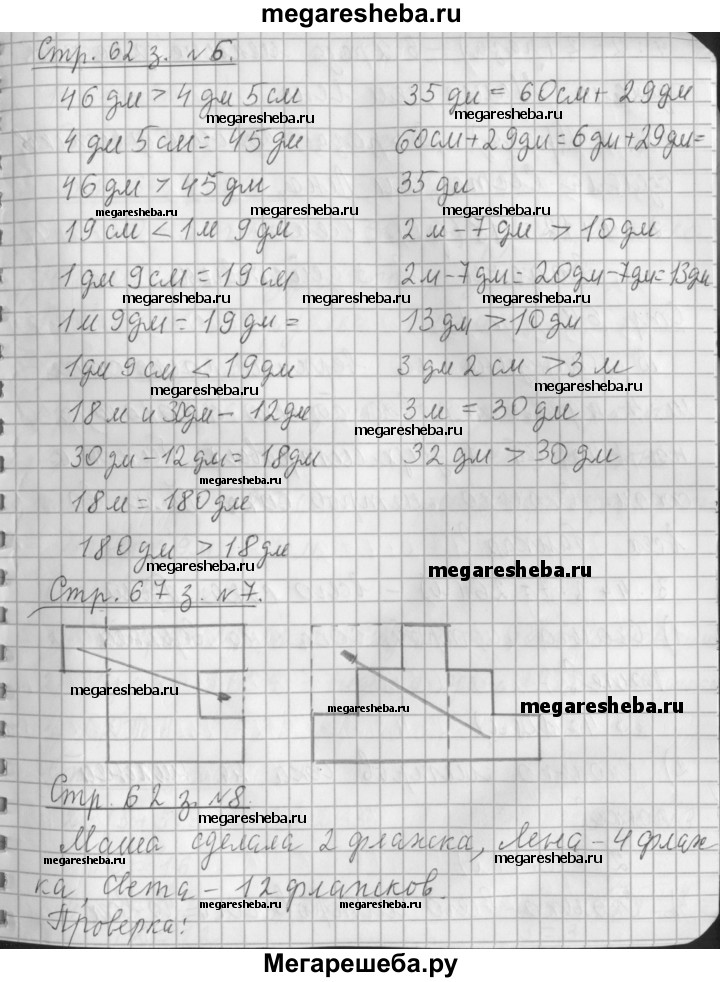 megaresheba.ru
Стр. 62 з. №6.
46 дм > 4 дм 5 см
megaresheba.ru
4 дм 5 см = 45 дм
megaresheba.ru
46 дм > 45 дм
megaresheba.ru
megaresheba.ru
19 см < 1 м 9 дм
1 дм 9 см = 19 см
megaresheba.ru
megaresheba.ru
1 м 9 дм = 19 дм =
1 дм 9 см < 19 дм
megaresheba.ru
18 м и 30 дм - 12 дм
30 дм - 12 дм = 18 дм
megaresheba.ru
18 м = 180 дм
180 дм > 18 дм
megaresheba.ru
35 дм = 60 см + 29 дм
megaresheba.ru
60 см + 29 дм = 6 дм + 29 дм =
35 дм
megaresheba.ru
2 м - 7 дм > 10 дм
2 м - 7 дм = 20 дм - 7 дм = 13 дм
megaresheba.ru
13 дм > 10 дм
3 дм 2 см > 3 м
megaresheba.ru
3 м = 30 дм
megaresheba.ru
32 дм > 30 дм
megaresheba.ru
megaresheba.ru
Стр. 67 з. №7.
megaresheba.ru
megaresheba.ru
megaresheba.ru
Стр. 62 з. №8.
megaresheba.ru
Маша сделала 2 флажка, Лена - 4 флаж
megaresheba.ru
megaresheba.ru
ка, Света - 12 флажков.
megaresheba.ru
megaresheba.ru
Проверка:
Мегарешеба.ру